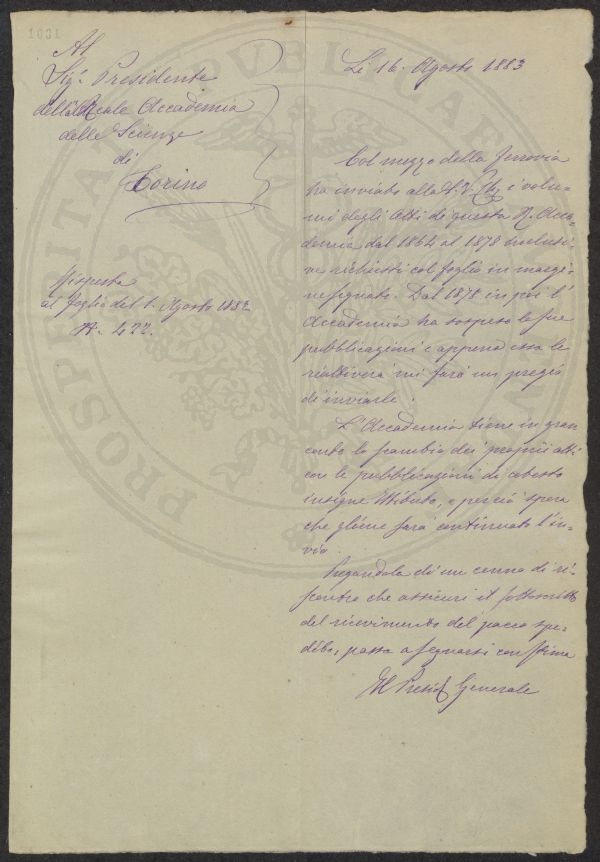 1031
Al
Sig.r Presidente
della Reale Accademia
delle Scienze
di
Torino
Risposta
al foglio del 1. Agosto 1882
N. 422.
Li 16. Agosto 1883
Col mezzo della ferrovia
ha inviato alla S. V. i volu-
mi degli Atti di questa R. Acca-
demia dal 1864 al 1878 inclusi-
ve richiesti col foglio in margi-
ne segnato. Dal 1878 in poi l'
Accademia ha sospeso le sue
pubblicazioni e appena essa le
riattiverà mi farà un pregio
di inviarle.
L'Accademia tiene in gran
conto lo scambio dei proprii atti
con le pubblicazioni di cotesto
insigne Istituto, e perciò spera
che gliene sarà continuato l'in-
vio.
Pregandola di un cenno di ri-
scontro che assicuri il sottoscritto
del ricevimento del pacco spe-
dito, passo a segnarsi con stima
Il Presid. Generale
PROSPERITATI PVBLICAE